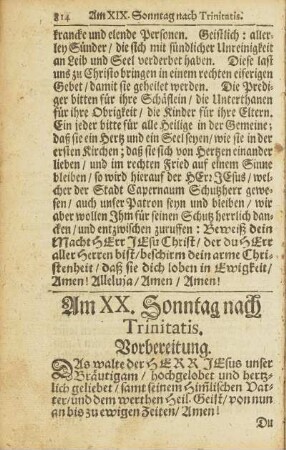 814 Am XIX. Sonntag nach Trinitatis.
krancke und elende Personen. Geistlich: aller-
ley Sünder/ die sich mit sündlicher Unreinigkeit
an Leid und Seel verderbet haben. Diese last
uns zu Christo bringen in einem rechten eiferigen
Gebet/ damit sie geheilet werden. Die Predi-
ger bitten für ihre Schäflein/ die Unterthanen
für ihre Obrigkeit/ die Kinder für ihre Eltern.
Ein jeder bitte für alle Heilige in der Gemeine;
daß sie ein Hertz und ein Seel seyen/ wie sie in der
ersten Kirchen; daß sie sich von Hertzen einander
lieben/ und im rechten Fried auf einem Sinne
bleiben/ so wird hierauf der HErr JEsus/ wel-
cher der Stadt Capernaum Schutzherr gewe-
sen/ auch unser Patron seyn und bleiben/ wir
aber wollen Ihm für seinen Schutz herrlich dan-
cken/ und entzwischen zuruffen: Beweiß dein
Macht HErr JEsu Christ/ der du HErr
aller Herren bist/ beschirm dein arme Chri-
stenheit/ daß sie dich loben in Ewigkeit/
Amen! Alleluja/ Amen/ Amen!
Am XX. Sonntag nach
Trinitatis.
Vorbereitung.
DAs walte der HERR JEsus unser
Bräutigam/ hochgelobet und hertz-
lich geliebet/ samt seinem Him̄lischen Vat-
ter/ und dem werthen Heil. Geist/ von nun
an biß zu ewigen Zeiten/ Amen!
Du